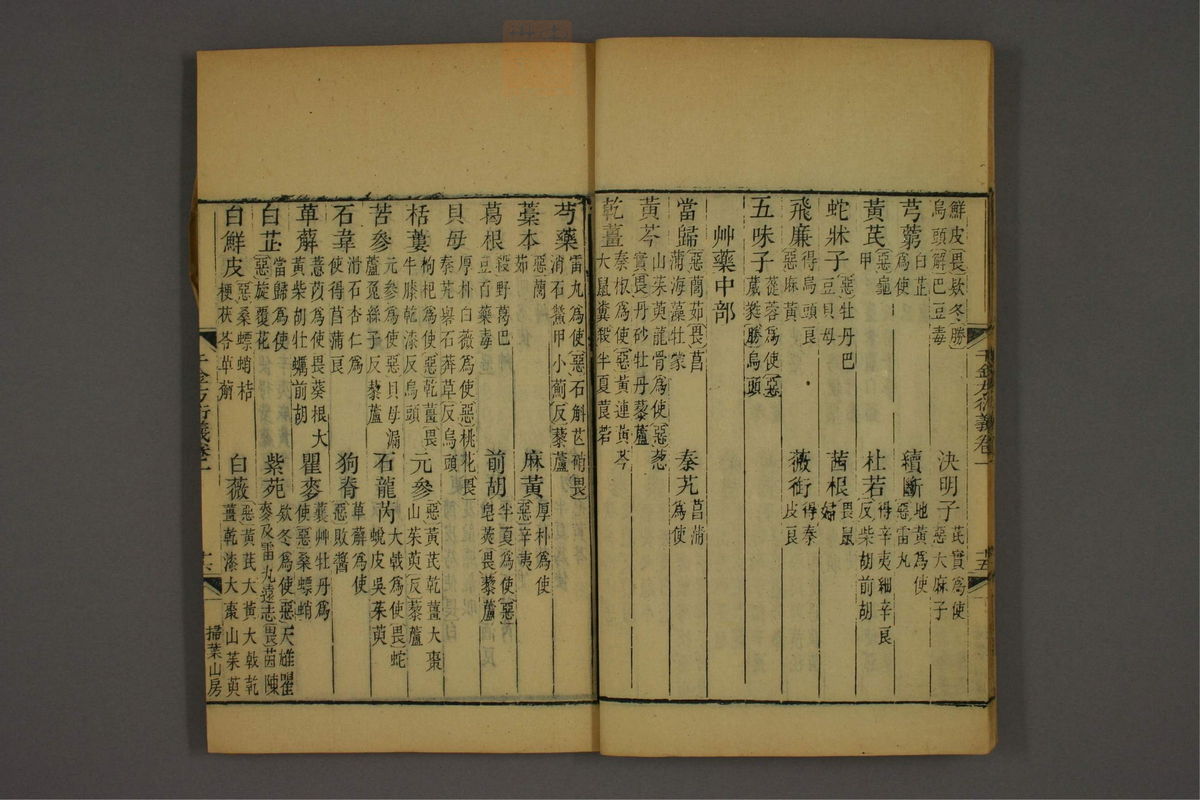 鮮皮畏欬冬勝
烏頭解巴豆毒
決明子
茋實爲使
惡大麻子
芎藭
白芷
爲使
續斷
地黃爲使
惡雷丸
黃芪
惡龜
甲
杜若
得辛夷細辛良
反柴胡前胡
蛇牀子
惡牡丹巴
豆貝母
茜根
畏鼠
婦
飛廉
得烏頭良
惡麻黃
薇銜
得秦
皮良
五味子
蓯蓉爲使惡
葳蕤勝烏頭
艸藥中部
當歸
惡䕡茹畏菖
蒲海藻牡蒙
秦艽
菖蒲
爲使
黃芩
山茱萸龍骨爲使惡葱
實畏丹砂牡丹藜蘆
乾薑
秦椒爲使惡黃連黃芩
天鼠糞殺半夏莨菪
芍藥
雷丸爲使惡石斛芒硝畏
消石鱉甲小薊反藜蘆
藁本
惡䕡
茹
麻黃
厚朴爲使
惡辛夷
葛根
殺野葛巴
豆百藥毒
前胡
半夏爲使惡
皂莢畏藜蘆
貝母
厚朴白薇爲使惡桃花畏
秦艽礜石莽草反烏頭
栝蔞
枸杞爲使惡乾薑畏
牛膝乾漆反烏頭
元參
惡黃芪乾薑大棗
山茱萸反藜蘆
苦參
元參爲使惡貝母漏
蘆菟絲子反藜蘆
石龍芮
大戟爲使畏蛇
蛻皮吳茱萸
石韋
滑石杏仁爲
使得菖蒲良
狗脊
萆薢爲使
惡敗醬
萆薢
薏苡爲使畏葵根大
黃柴胡牡蠣前胡
瞿麥
蘘艸牡丹爲
使惡桑螵蛸
白芷
當歸爲使
惡旋覆花
紫苑
欬冬爲使惡天雄瞿
麥及雷丸遠志畏茵陳
白鮮皮
惡桑螵蛸桔
梗茯苓萆薢
白薇
惡黃芪大黃大戟乾
薑乾漆大棗山茱萸
千金方衍義卷一
十五
千金方衍義卷一
十六
掃葉山房